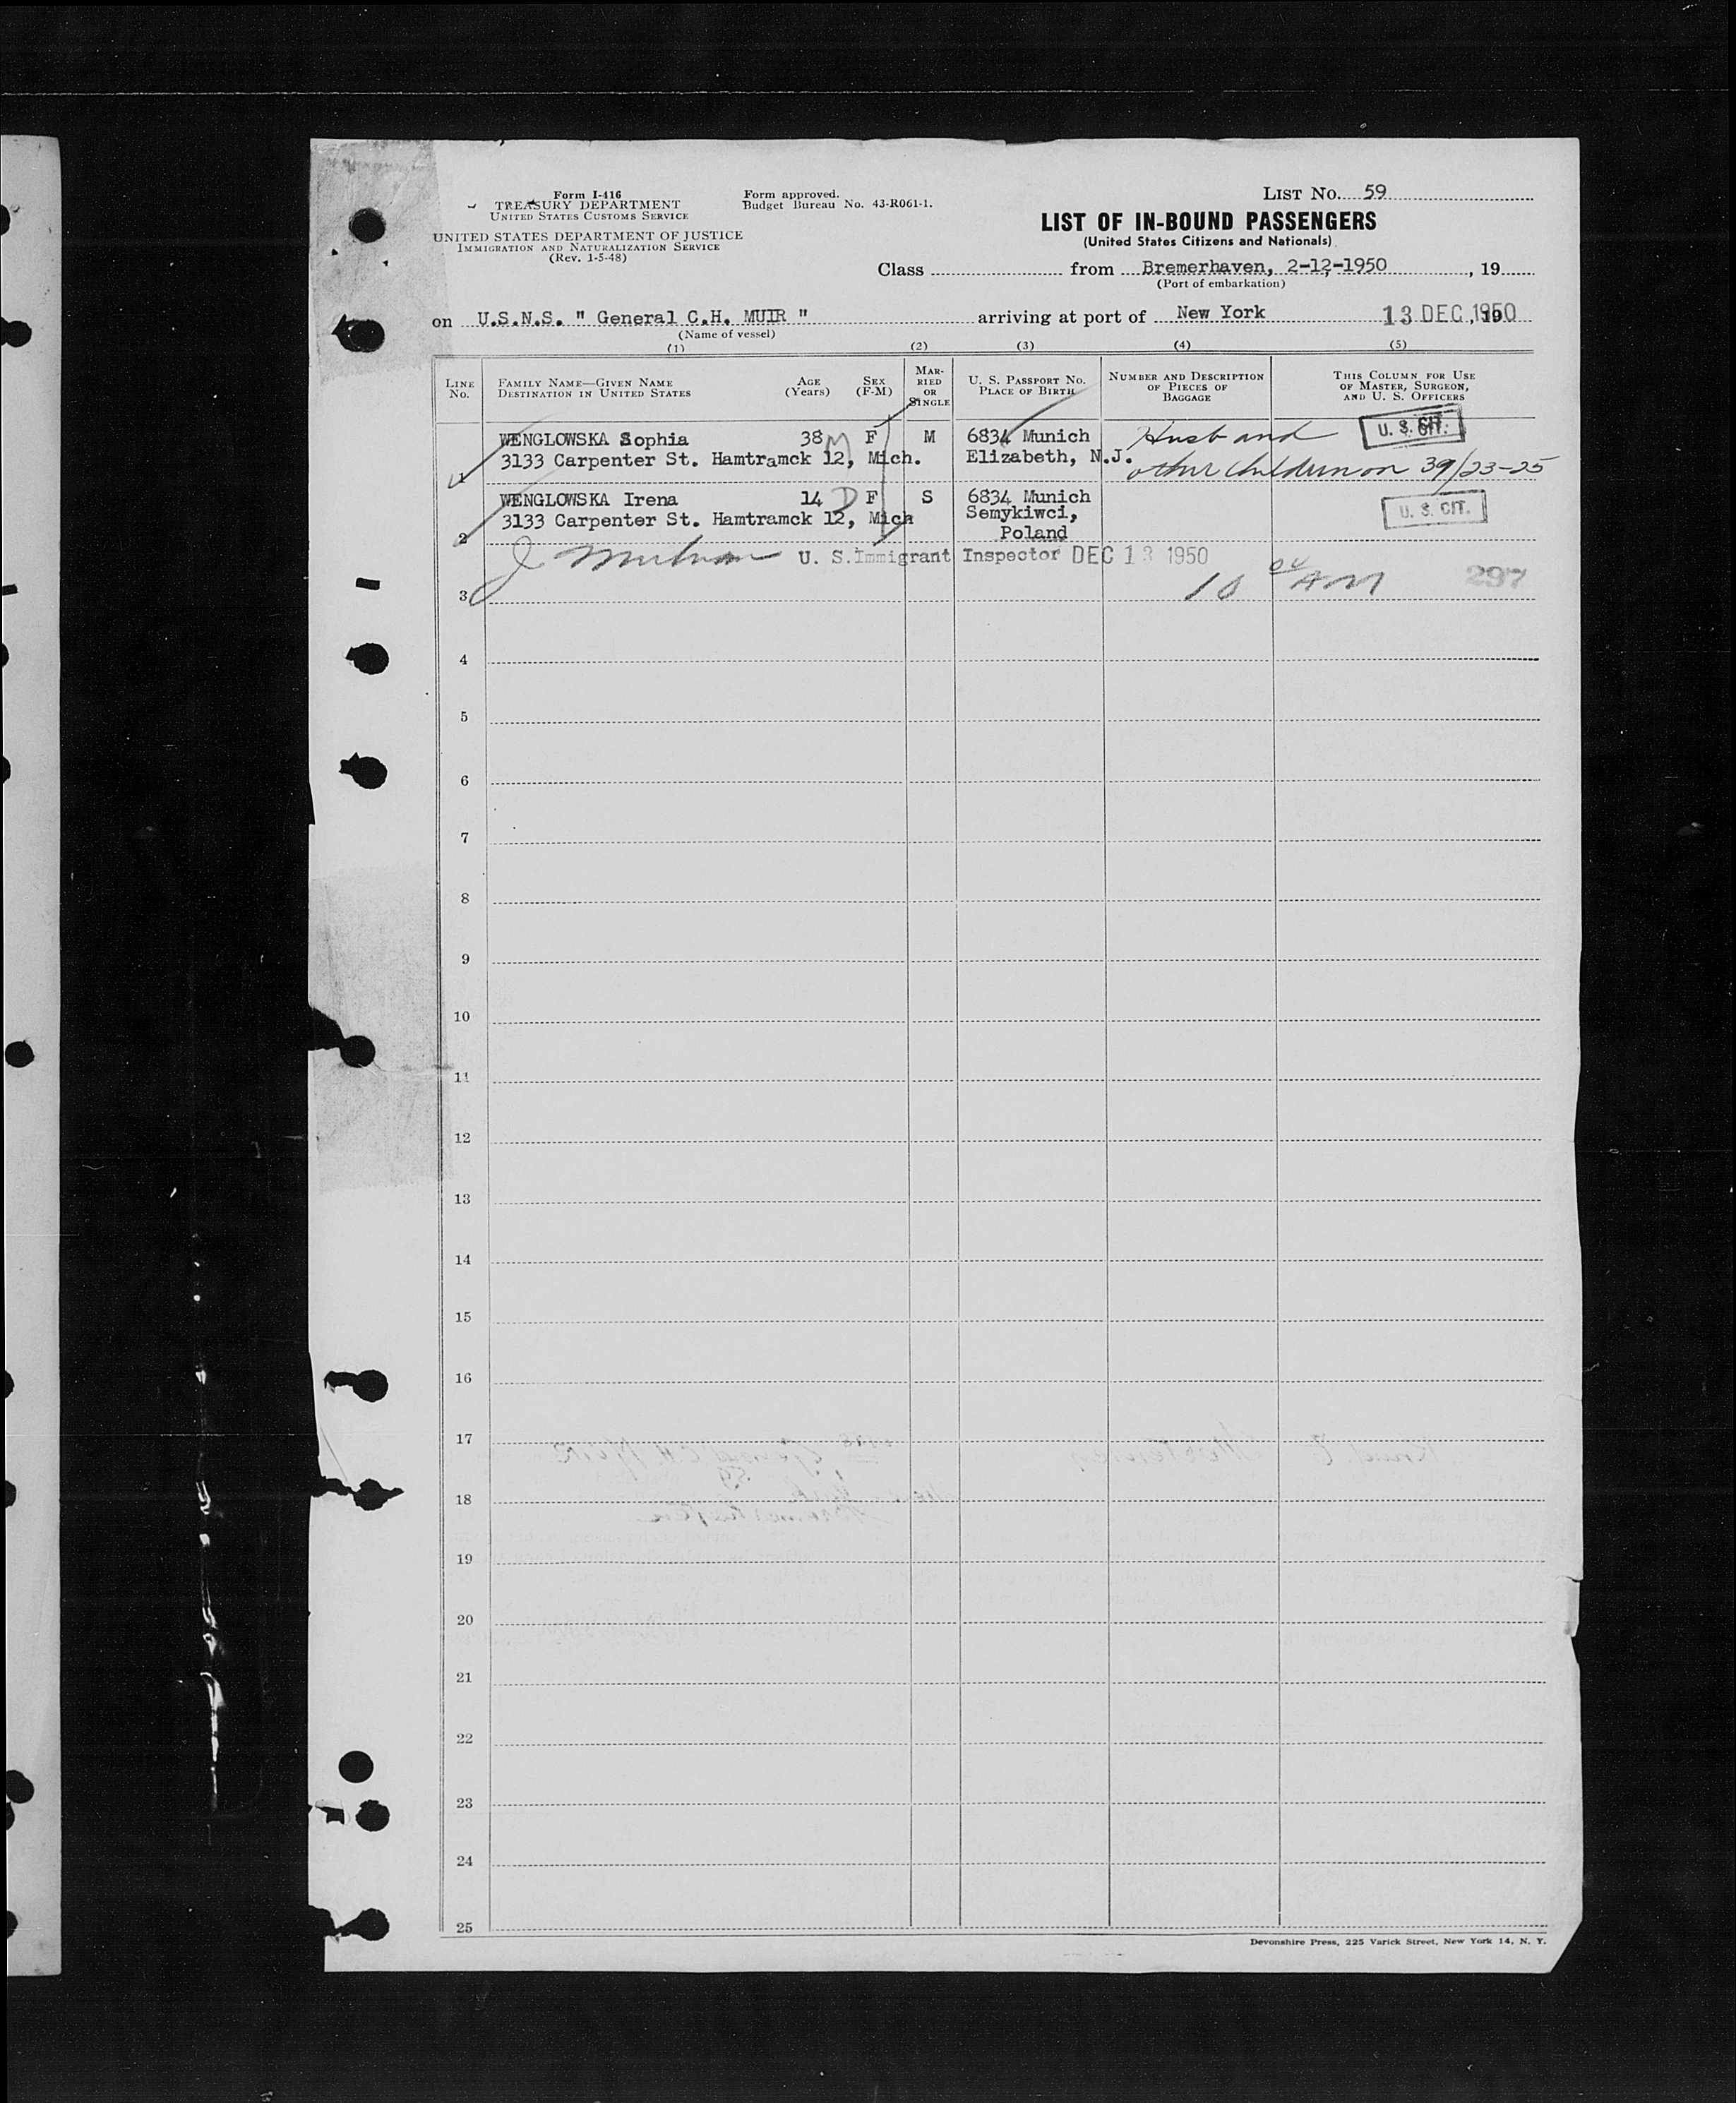 Form I-416
TREASURY DEPARTMENT
UNITED STATES CUSTOMS SERVICE
UNITED STATES DEPARTMENT OF JUSTICE
IMMIGRATION AND NATURALIZATION SERVICE
(Rev. 1-5-48)
Form approved.
Budget Bureau No. 43-R061-1.
LIST NO. 59
LIST OF IN-BOUND PASSENGERS
(United States Citizens and Nationals)
Class from Bremerhaven, 2-12-1950, 19
(Port of embarkation)
on U.S.N.S. " General C.H. MUIR " arriving at port of New York 13 DEC 1950, 19
(Name of vessel)
(1) (2) (3) (4) (5)
LINE NO.
FAMILY NAME—GIVEN NAME
DESTINATION IN UNITED STATES
AGE (Years)
SEX (F-M)
MARRIED OR SINGLE
U. S. PASSPORT NO.
PLACE OF BIRTH
NUMBER AND DESCRIPTION OF PIECES OF BAGGAGE
THIS COLUMN FOR USE OF MASTER, SURGEON, AND U. S. OFFICERS
WENGLOWSKA Sophia 38 M F M 6834 Munich Husband U. S. CIT.
1 3133 Carpenter St. Hamtramck 12, Mich. Elizabeth, N.J. other children on 39/23-25
WENGLOWSKA Irena 14 D F S 6834 Munich U. S. CIT.
3133 Carpenter St. Hamtramck 12, Mich Semykiwci,
2 Poland
U. S. Immigrant Inspector DEC 13 1950
3 10 00 AM 297
4
5
6
7
8
9
10
11
12
13
14
15
16
17
18
19
20
21
22
23
24
25
Devonshire Press, 225 Varick Street, New York 14, N. Y.